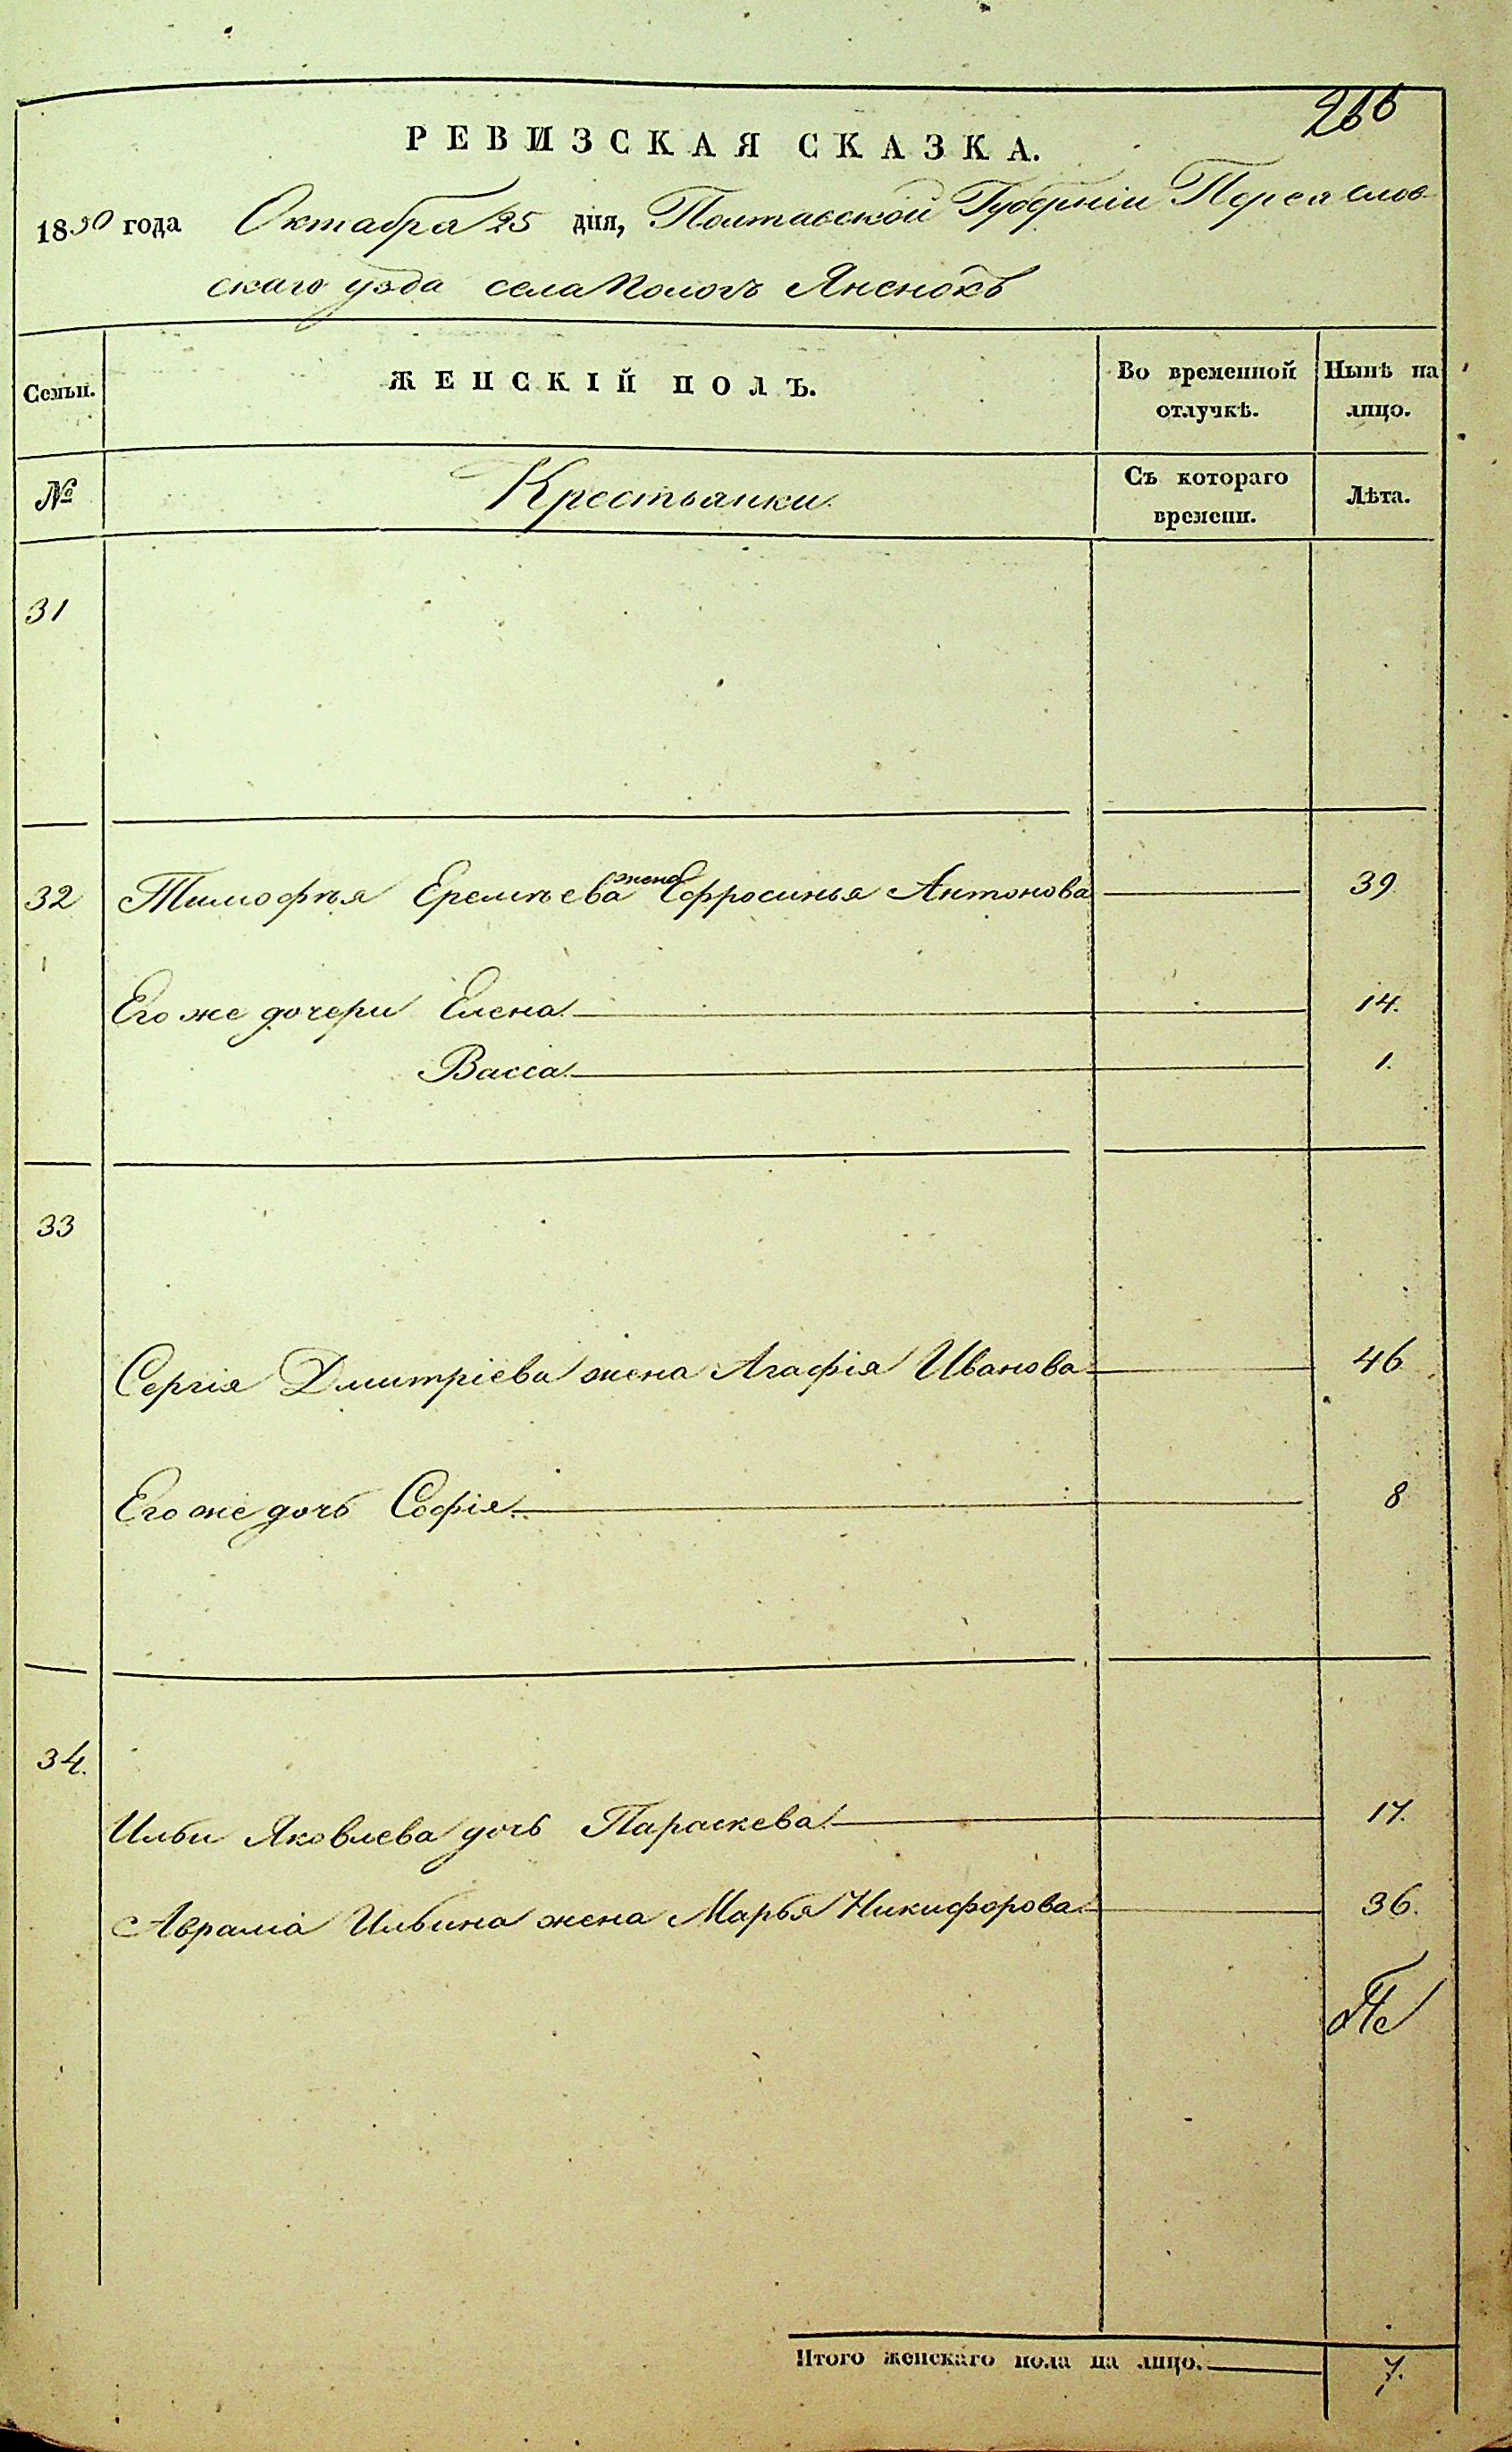 266
РЕВИЗСКАЯ СКАЗКА.
1850 года Октября 25 дня, Полтавской Губерніи Переяслов-
скаго уѣзда села Пологъ Яненокъ
Семьи. ЖЕНСКІЙ ПОЛЪ. Во временной отлучкѣ. Нынѣ на лицо.
№ Крестьянки. Съ котораго времени. Лѣта.
31
32 Тимофѣя Еремѣева жена Ефросинья Антонова 39
Его же дочери Елена 14.
Васса 1.
33
Сергія Дмитріева жена Агафія Иванова 46
Его же дочь Софія 8
34.
Ильи Яковлева дочь Параскева 17.
Аврама Ильина жена Марья Никифорова 36.
Итого женскаго пола на лицо. 7.